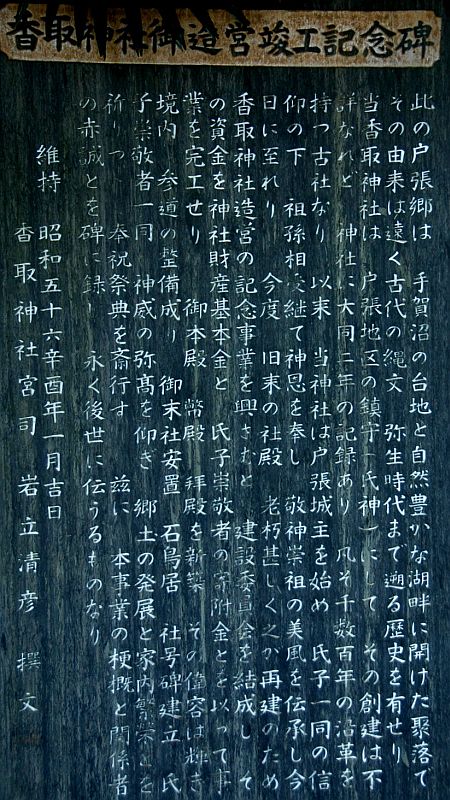 香取神社御造営竣工記念碑
此の戸張郷は　手賀沼の台地と自然豊かな湖畔に開けた聚落で
その由来は遠く古代の縄文　弥生時代まで遡る歴史を有せり
当香取神社は　戸張地区の鎮守（氏神）にして　その創建は不
詳なれど　神社に大同二年の記録あり　凡そ千数百年の沿革を
持つ古社なり　以来　当神社は戸張城主を始め　氏子一同の信
仰の下　祖孫相受継て神恩を奉し　敬神崇祖の美風を伝承し今
日に至れり　今度　旧来の社殿　老朽甚しく之が再建のため
香取神社造営の記念事業を興さむと　建設委員会を結成し　そ
の資金を神社財産基本金と　氏子崇敬者の寄附金とを以って事
業を完工せり　御本殿　幣殿　拝殿を新築　その偉容は輝き
境内　参道の整備成り　御末社安置　石鳥居　社号碑建立　氏
子崇敬者一同　神威の弥高を仰ぎ　郷土の発展と家内繁栄とを
祈りつゝ　奉祝祭典を斎行す　茲に　本事業の梗概と関係者
の赤誠とを碑に録し　永く後世に伝うるものなり
維持　昭和五十六辛酉年一月吉日
香取神社宮司　岩立清彦　撰文